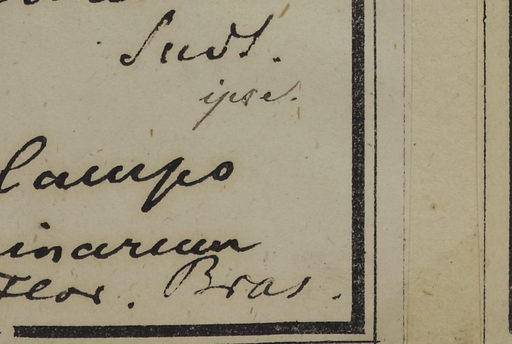 ipse.
Campo
inarum
Flor. Bras.